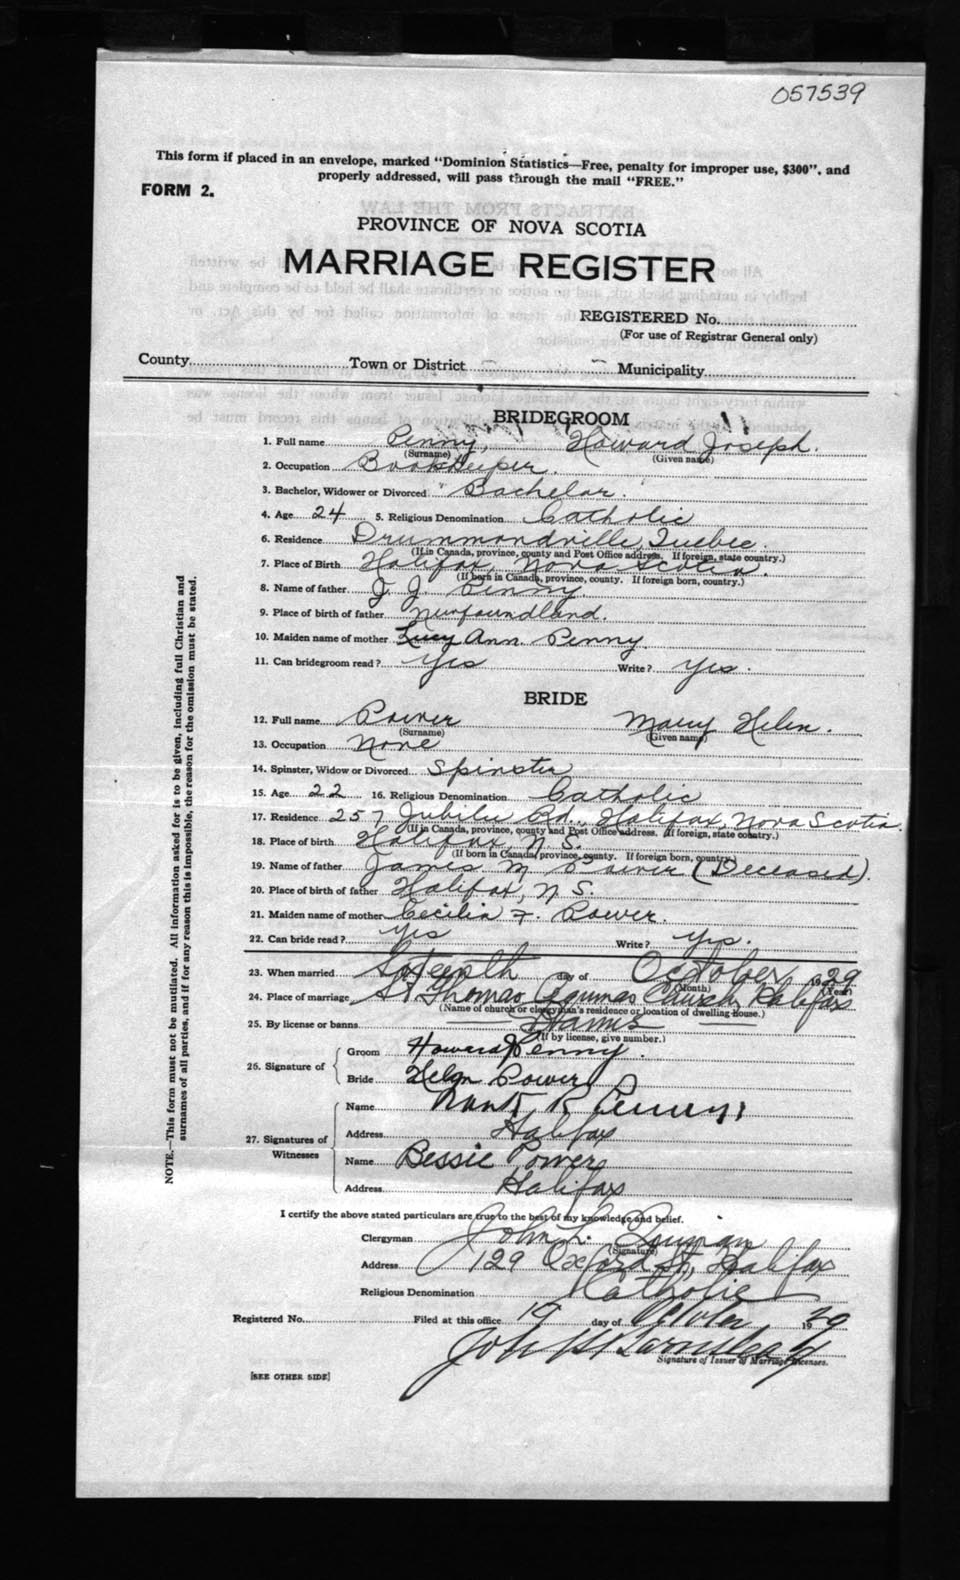 057539
This form if placed in an envelope, marked "Dominion Statistics—Free, penalty for improper use, $300", and
properly addressed, will pass through the mail "FREE."
FORM 2.
PROVINCE OF NOVA SCOTIA
MARRIAGE REGISTER
REGISTERED No.
(For use of Registrar General only)
County Town or District Municipality
BRIDEGROOM
1. Full name Penny, Howard Joseph.
(Surname) (Given name)
2. Occupation Bookkeeper.
3. Bachelor, Widower or Divorced Bachelor.
4. Age 24 5. Religious Denomination Catholic
6. Residence Drummondville, Quebec.
(If in Canada, province, county and Post Office address. If foreign, state country.)
7. Place of Birth Halifax, Nova Scotia.
(If born in Canada, province, county. If foreign born, country.)
8. Name of father J. J. Penny
9. Place of birth of father Newfoundland.
10. Maiden name of mother Lucy Ann Penny.
11. Can bridegroom read? yes Write? yes.
BRIDE
12. Full name Power Mary Helen.
(Surname) (Given name)
13. Occupation None
14. Spinster, Widow or Divorced Spinster
15. Age 22 16. Religious Denomination Catholic
17. Residence 257 Jubilee Rd., Halifax, Nova Scotia.
(If in Canada, province, county and Post Office address. If foreign, state country.)
18. Place of birth Halifax, N.S.
(If born in Canada, province, county. If foreign born, country.)
19. Name of father James M Power (Deceased).
20. Place of birth of father Halifax, N S.
21. Maiden name of mother Cecilia F. Power.
22. Can bride read? yes Write? yes.
23. When married day of October 1929
(Month) (Year)
24. Place of marriage St Thomas Aquinas Church, Halifax
(Name of church or clergyman's residence or location of dwelling-house.)
25. By license or banns Banns
(If by license, give number.)
26. Signature of
Groom Howard J Penny.
Bride Helen Power
27. Signatures of Witnesses
Name Frank R Penny
Address Halifax
Name Bessie Power
Address Halifax
I certify the above stated particulars are true to the best of my knowledge and belief.
Clergyman John L.
(Signature)
Address 129 Oxford St, Halifax
Religious Denomination Catholic
Registered No. Filed at this office 19 day of October 1929
Signature of Issuer of Marriage Licenses.
[SEE OTHER SIDE]
NOTE.—This form must not be mutilated. All information asked for is to be given, including full Christian and
surnames of all parties, and if for any reason this is impossible, the reason for the omission must be stated.